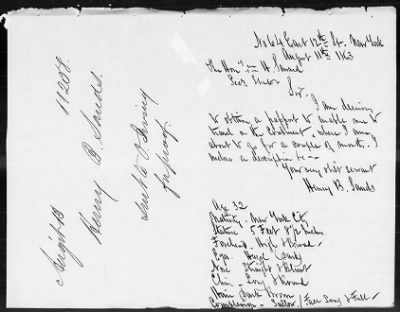 No 64 East 12th St. New York
August 11th 1863
The Hon. Wm H. Seward
Secy State
Sir,
I am desirous
to obtain a passport to enable me to
travel on the Continent, where I am
about to go for a couple of months. I
enclose a description &c—
Your obdt servant
Henry B. Sands
Age 32
Nativity - New York City
Stature 5 Feet 8½ Inches
Forehead, High & Broad
Eyes Hazel
Nose Straight
Chin - Long & Round
Hair Dark Brown
Complexion - Sallow / Face Long & Full
11207.
Henry B. Sands.
Augst 18
Sent to
for proof.